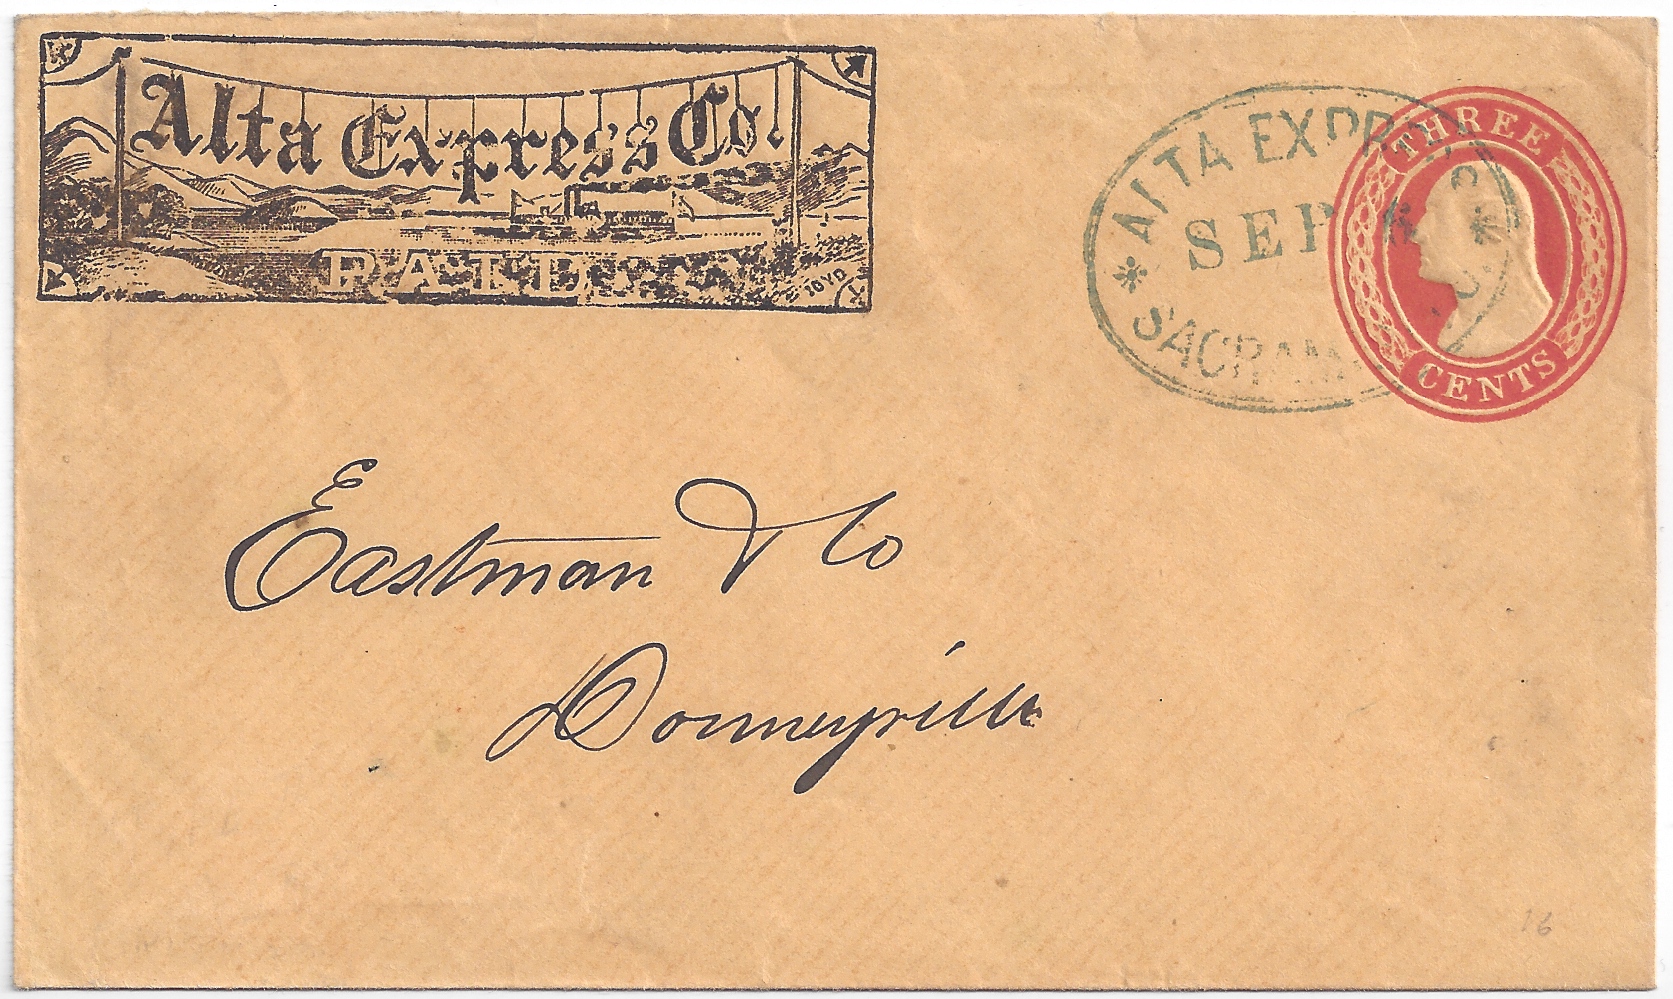 Alta Express Co.
PAID
BOYD
ALTA EXPR
SEP
SACRAM
THREE
CENTS
Eastman & Co
Downeyville
16